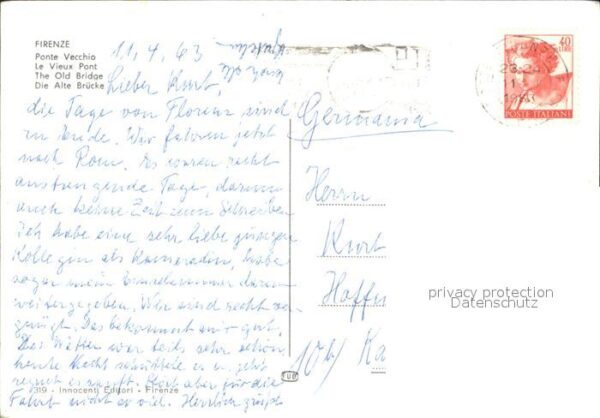 FIRENZE
Ponte Vecchio
Le Vieux Pont
The Old Bridge
Die Alte Brücke
11.4.63
Lieber Kurt,
die Tage von Florenz sind
zu Ende. Wir fahren jetzt
nach Rom. Es waren recht
anstrengende Tage, darum
auch keine Zeit zum Schreiben
Ich habe eine sehr liebe jüngere
Kollegin als Kameradin, habe
sogar mein Einzelzimmer darum
weitergegeben. Wir sind recht ver-
gnügt. Das bekommt mir gut.
Das Wetter war teils sehr schön
heute Nacht schüttete es u. jetzt
regnet es sanft. Stört aber für die
Fahrt nicht so viel. Herzlich
319 - Innocenti Editori - Firenze
40
LIRE
POSTE ITALIANE
Germania
Herrn
Kurt
Ka
privacy protection
Datenschutz